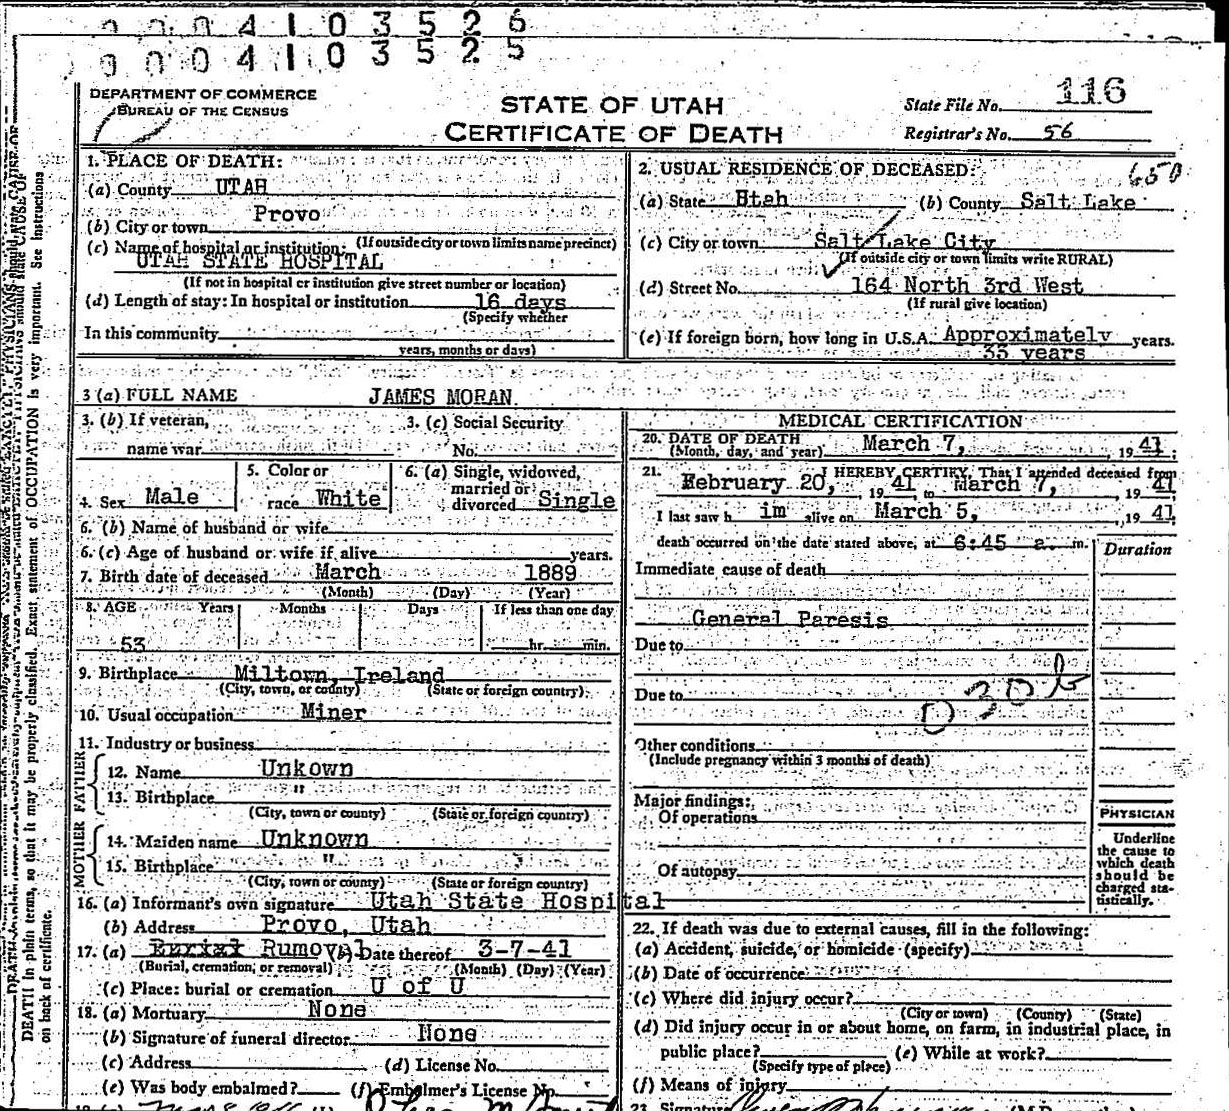 0 0 0 4 1 0 3 5 2 6
0 0 0 4 1 0 3 5 2 5
DEPARTMENT OF COMMERCE
BUREAU OF THE CENSUS
STATE OF UTAH
CERTIFICATE OF DEATH
State File No. 116
Registrar's No. 56
1. PLACE OF DEATH:
(a) County UTAH
Provo
(b) City or town
(c) Name of hospital or institution: (If outside city or town limits name precinct)
UTAH STATE HOSPITAL
(If not in hospital or institution give street number or location)
(d) Length of stay: In hospital or institution 16 days
(Specify whether
In this community
years, months or days)
2. USUAL RESIDENCE OF DECEASED: 650
(a) State Utah (b) County Salt Lake
(c) City or town Salt Lake City
(If outside city or town limits write RURAL)
(d) Street No. 164 North 3rd West
(If rural give location)
(e) If foreign born, how long in U.S.A. Approximately years.
33 years
3 (a) FULL NAME JAMES MORAN
3. (b) If veteran, 3. (c) Social Security
name war No.
4. Sex Male 5. Color or race White 6. (a) Single, widowed, married or divorced Single
6. (b) Name of husband or wife
6. (c) Age of husband or wife if alive years.
7. Birth date of deceased March 1889
(Month) (Day) (Year)
8. AGE Years Months Days If less than one day
53 hr. min.
9. Birthplace Miltown, Ireland
(City, town, or county) (State or foreign country)
10. Usual occupation Miner
11. Industry or business
FATHER
12. Name Unkown
13. Birthplace "
(City, town or county) (State or foreign country)
MOTHER
14. Maiden name Unknown
15. Birthplace "
(City, town or county) (State or foreign country)
16. (a) Informant's own signature Utah State Hospital
(b) Address Provo, Utah
17. (a) Burial Rumoval (b) Date thereof 3-7-41
(Burial, cremation, or removal) (Month) (Day) (Year)
(c) Place: burial or cremation U of U
18. (a) Mortuary None
(b) Signature of funeral director None
(c) Address (d) License No.
(e) Was body embalmed? (f) Embalmer's License No.
MEDICAL CERTIFICATION
20. DATE OF DEATH
(Month, day, and year) March 7, 1941
21. I HEREBY CERTIFY, That I attended deceased from
February 20, 1941 to March 7, 1941
I last saw h im alive on March 5, 1941
death occurred on the date stated above, at 6:45 a. m.
Duration
Immediate cause of death
General Paresis
Due to
Due to
030b
Other conditions
(Include pregnancy within 3 months of death)
Major findings:
Of operations
Of autopsy
PHYSICIAN
Underline
the cause to
which death
should be
charged sta-
tistically.
22. If death was due to external causes, fill in the following:
(a) Accident, suicide, or homicide (specify)
(b) Date of occurrence
(c) Where did injury occur?
(City or town) (County) (State)
(d) Did injury occur in or about home, on farm, in industrial place, in
public place? (e) While at work?
(Specify type of place)
(f) Means of injury
23. Signature
DEATH in plain terms, so that it may be properly classified. Exact statement of OCCUPATION is very important. See Instructions
on back of certificate.